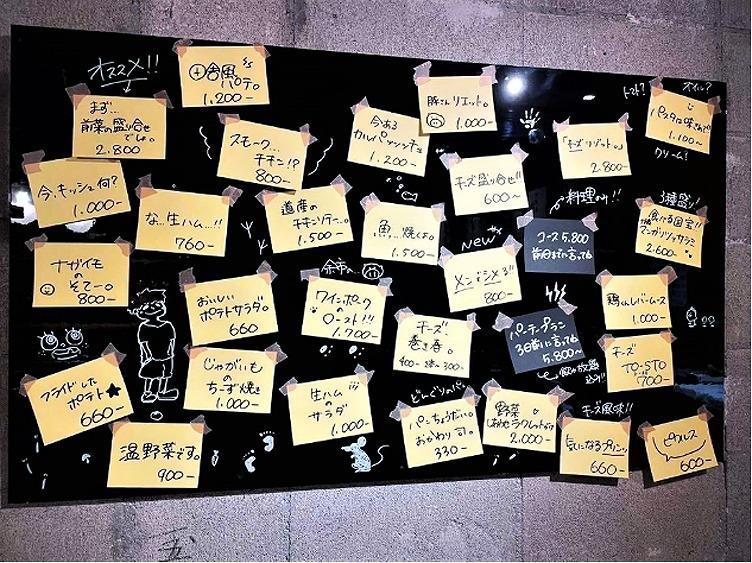 オススメ!!
まず…
前菜の盛り合せ
でしょ。
2.800
田舎風
パテ。
1.200-
スモーク…
チキン!?
800-
今ある
カルパッチョ
1.200-
豚さんリエット。
1.000-
チーズ盛り合せ!!
600~
「チーズリゾット。」
2.800-
トマト?
オイル?
パスタは味みて!!
1.100~
クリーム!
今、キッシュ何?
1.000-
な…生ハム…!!
760-
道産の
チキンソテー。
1.500-
魚…焼くよ。
1.500-
NEW
メンチシメ!!
800-
料理のみ!!
コース5.800
前日まで言ってね
3種盛り!
食べる国宝!!
マンガリッツァサラミ
2.600-
ナガイモ
の
そてー。
800-
おいしい
ポテトサラダ。
660
余市の
ワインポークの
ロースト!!!
1.700
チーズ
春き巻。
400-
300-
パーティープラン
3日前に言ってね
5.800~
飲み放題
込み!!
鶏くんレバームース
1.000-
チーズ
TO-STO
700-
フライドした
ポテト★
660-
じゃがいも
の
ちーず焼き
1.000-
生ハム
の
サラダ
1.000-
どんぐりのパン
パンちょうだい。
おかわり可。
330-
野菜
しあわせラクレットがけ
2.000-
チーズ風味!!
気になるプリン
660-
ピクルス
600-
温野菜です。
900-